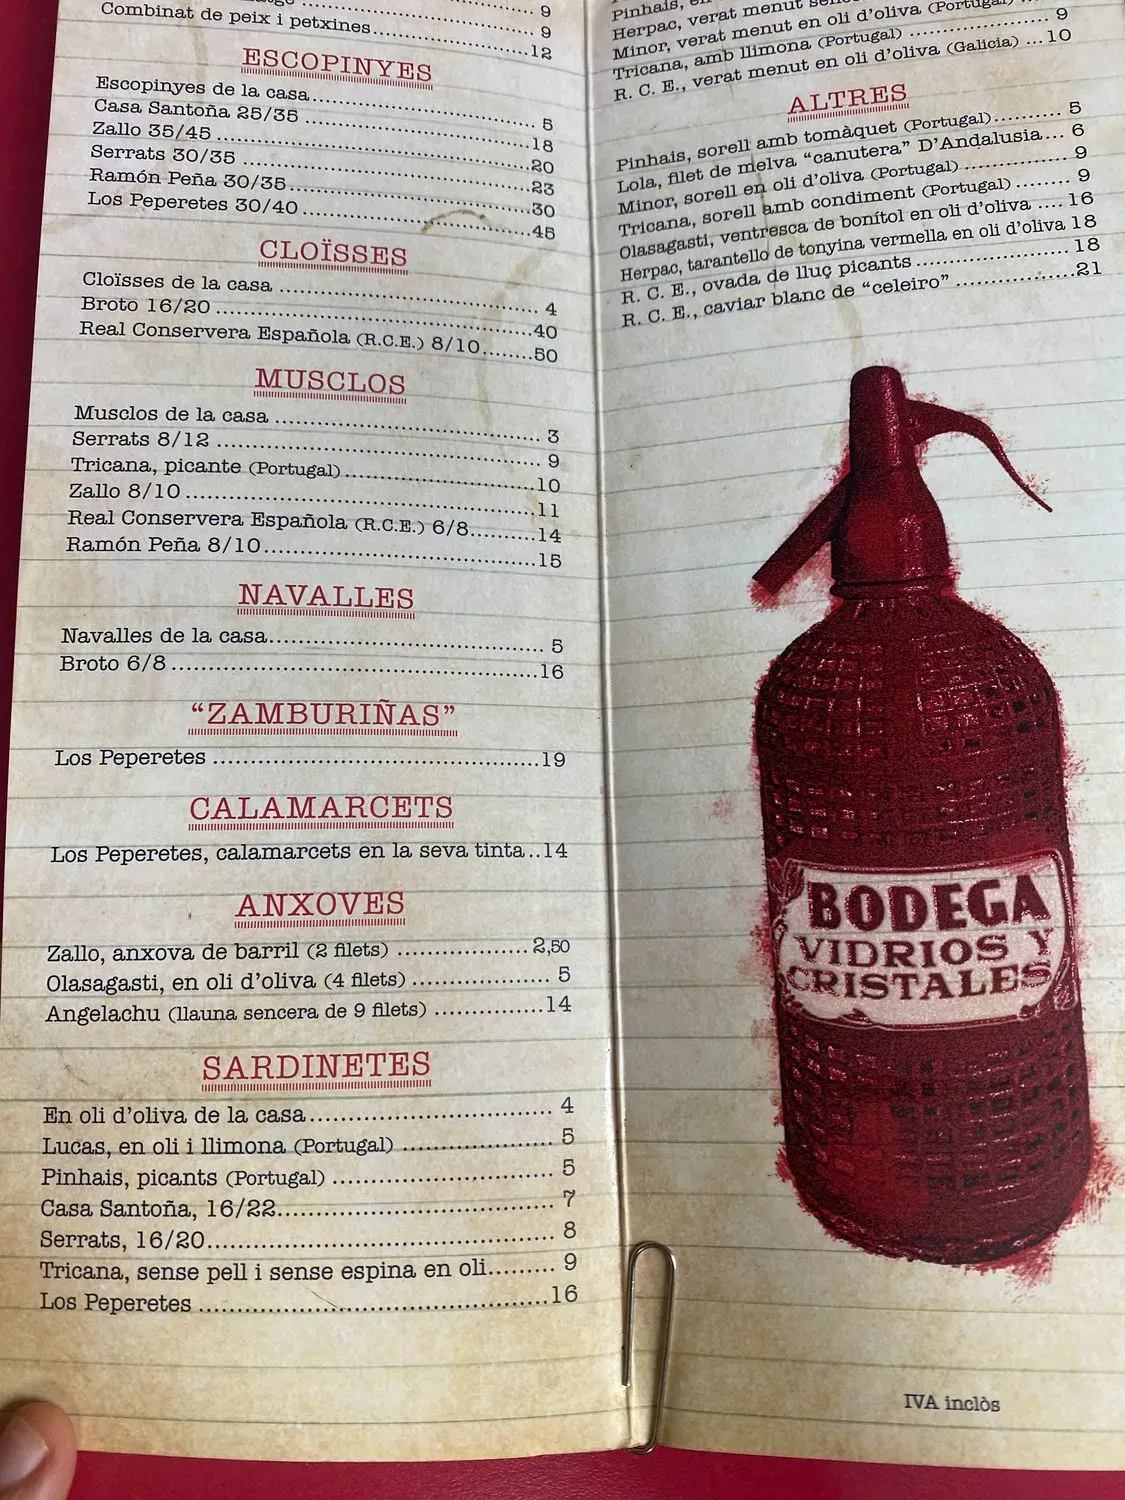 9
Combinat de peix i petxines 9
12
ESCOPINYES
Escopinyes de la casa 5
Casa Santoña 25/35 18
Zallo 35/45 20
Serrats 30/35 23
Ramón Peña 30/35 30
Los Peperetes 30/40 45
CLOÏSSES
Cloïsses de la casa 4
Broto 16/20 40
Real Conservera Española (R.C.E.) 8/10 50
MUSCLOS
Musclos de la casa 3
Serrats 8/12 9
Tricana, picante (Portugal) 10
Zallo 8/10 11
Real Conservera Española (R.C.E.) 6/8 14
Ramón Peña 8/10 15
NAVALLES
Navalles de la casa 5
Broto 6/8 16
“ZAMBURIÑAS”
Los Peperetes 19
CALAMARCETS
Los Peperetes, calamarcets en la seva tinta 14
ANXOVES
Zallo, anxova de barril (2 filets) 2,50
Olasagasti, en oli d’oliva (4 filets) 5
Angelachu (llauna sencera de 9 filets) 14
SARDINETES
En oli d’oliva de la casa 4
Lucas, en oli i llimona (Portugal) 5
Pinhais, picants (Portugal) 5
Casa Santoña, 16/22 7
Serrats, 16/20 8
Tricana, sense pell i sense espina en oli 9
Los Peperetes 16
Pinhais,
Herpac, verat menut
Minor, verat menut en oli d’oliva (Portugal)
Tricana, amb llimona (Portugal) 9
R. C. E., verat menut en oli d’oliva (Galicia) 10
ALTRES
Pinhais, sorell amb tomàquet (Portugal) 5
Lola, filet de melva “canutera” D’Andalusia 6
Minor, sorell en oli d’oliva (Portugal) 9
Tricana, sorell amb condiment (Portugal) 9
Olasagasti, ventresca de bonítol en oli d’oliva 16
Herpac, tarantello de tonyina vermella en oli d’oliva 18
R. C. E., ovada de lluç picants 18
R. C. E., caviar blanc de “celeiro” 21
BODEGA
VIDRIOS Y
CRISTALES
IVA inclòs